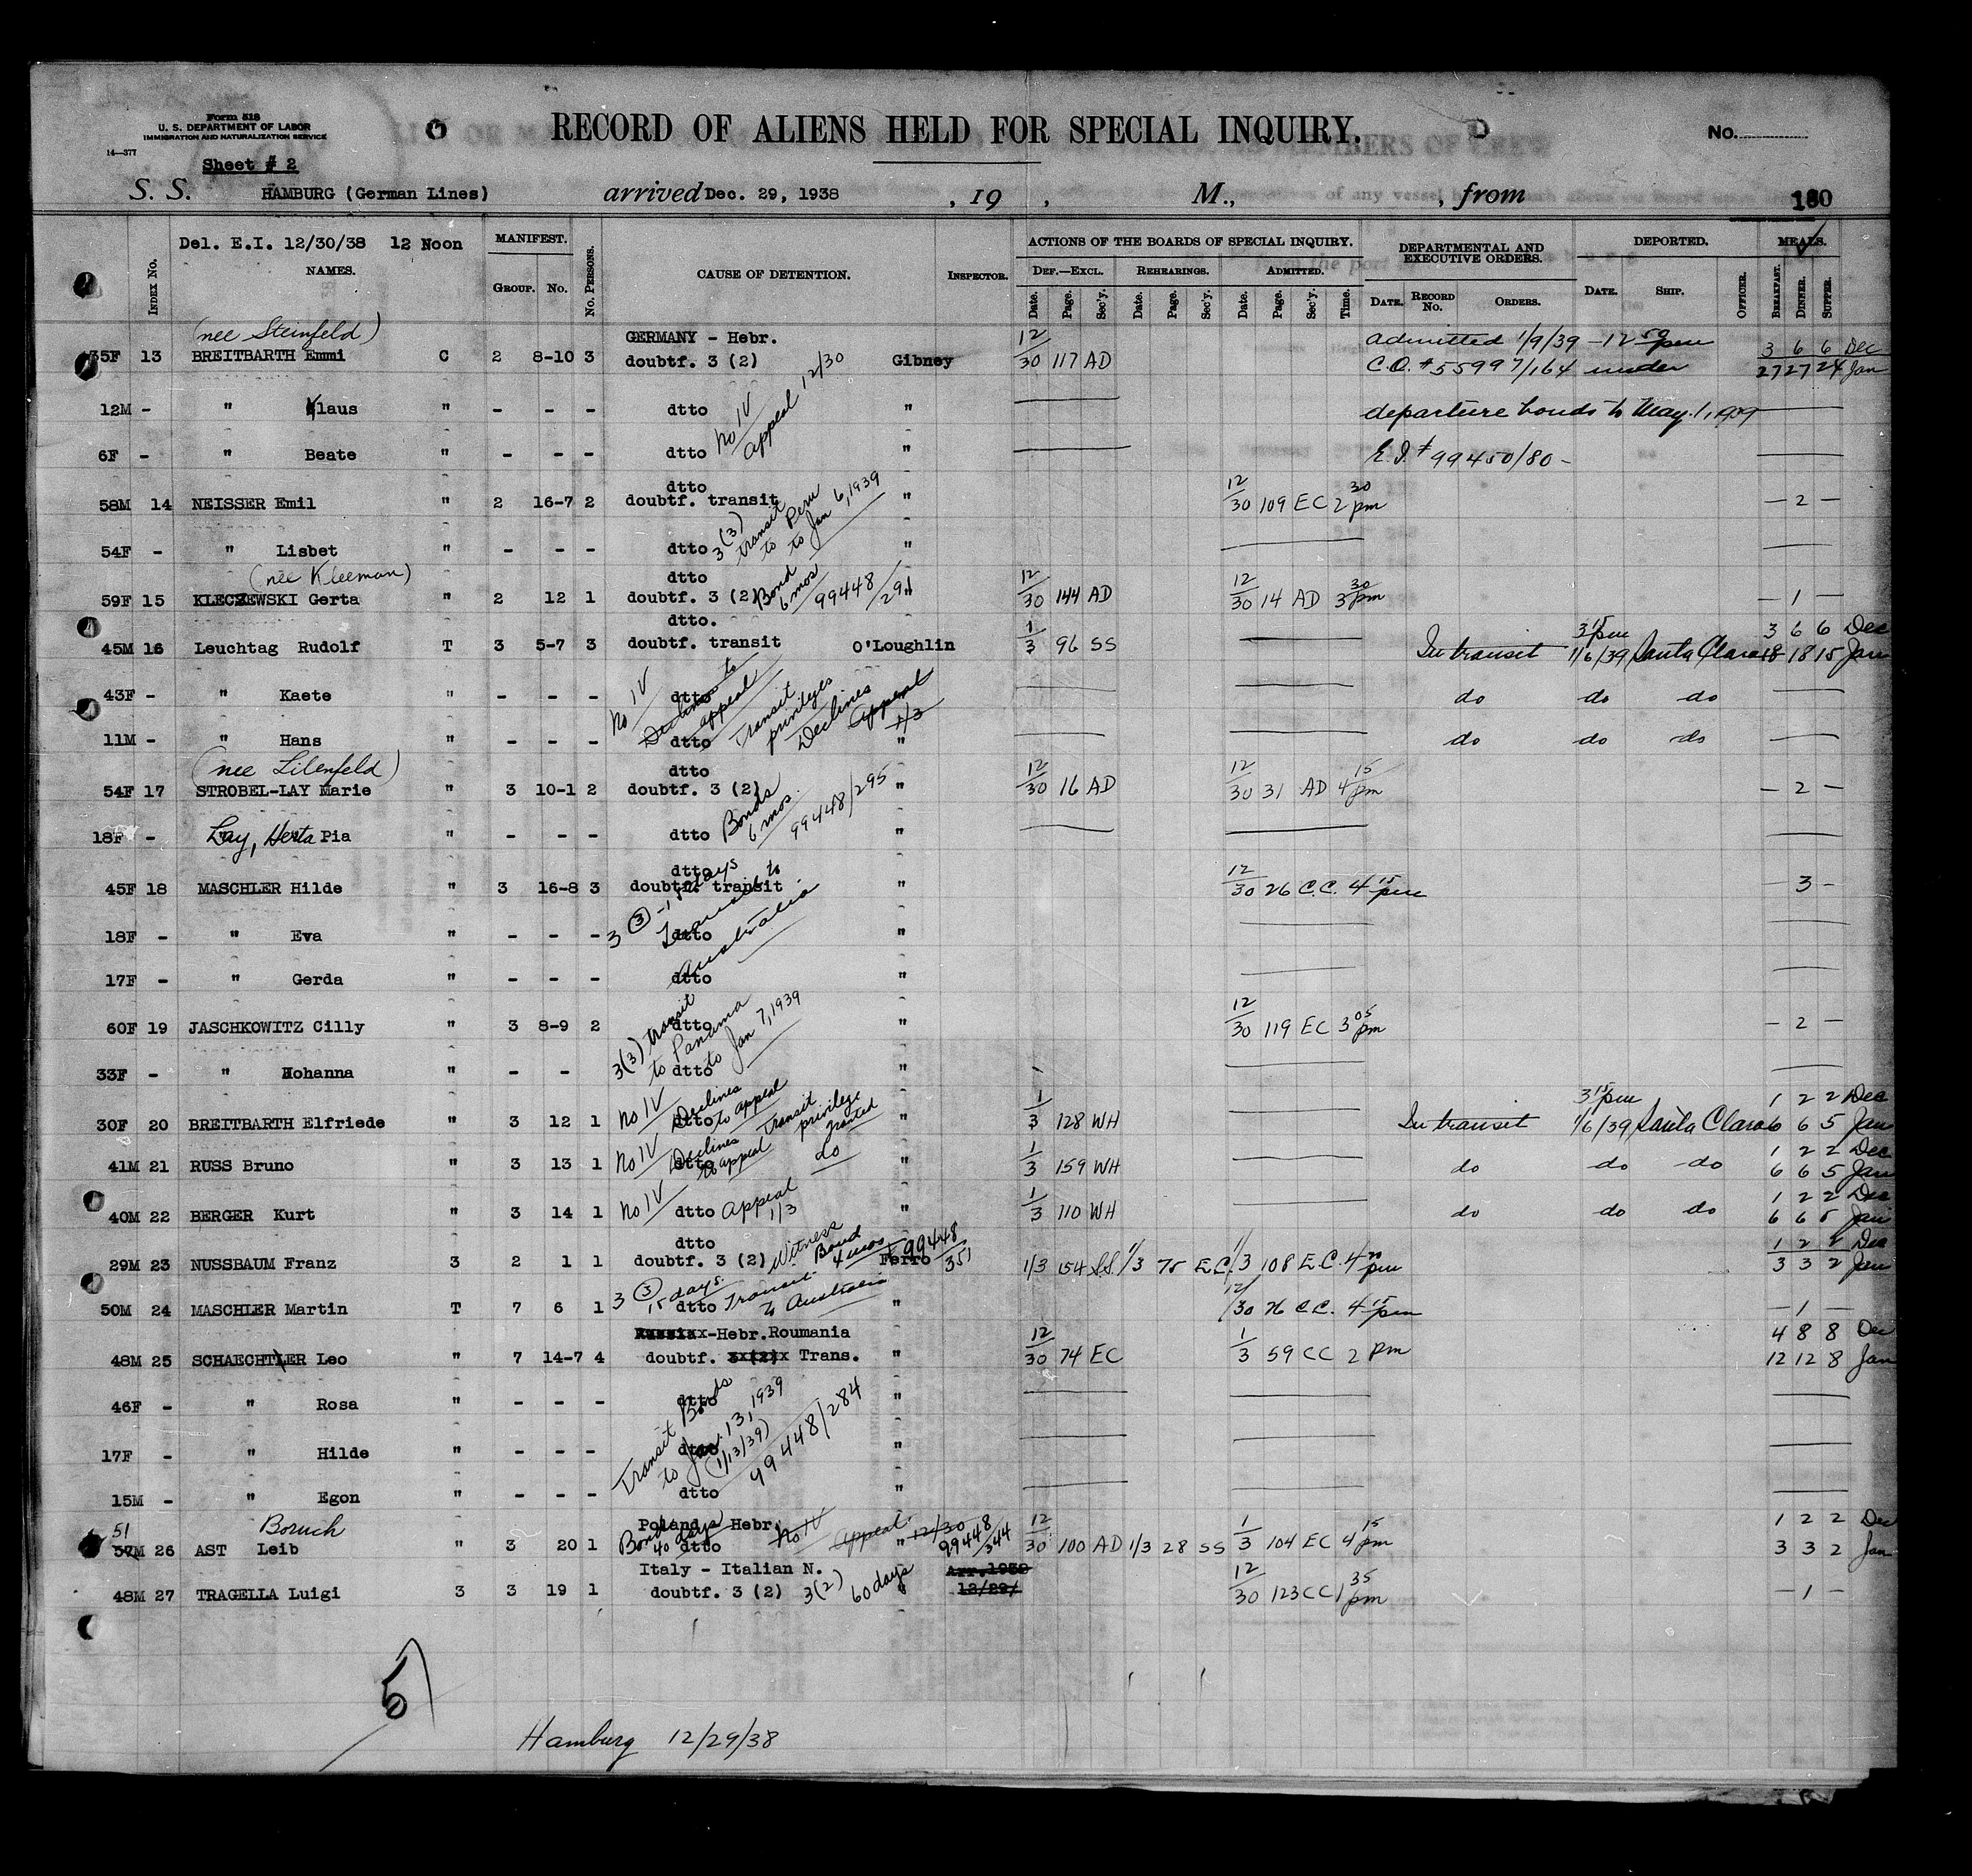 Form 518
U. S. DEPARTMENT OF LABOR
IMMIGRATION AND NATURALIZATION SERVICE
14—377
RECORD OF ALIENS HELD FOR SPECIAL INQUIRY.
No.
Sheet # 2
S. S. HAMBURG (German Lines) arrived Dec. 29, 1938 , 19 , M., , from
180
Del. E.I. 12/30/38 12 Noon
INDEX No. NAMES. MANIFEST. GROUP. No. No. PERSONS. CAUSE OF DETENTION. INSPECTOR.
ACTIONS OF THE BOARDS OF SPECIAL INQUIRY. DEPARTMENTAL AND EXECUTIVE ORDERS. DEPORTED. MEALS.
DEF.—EXCL. REHEARINGS. ADMITTED.
Date. Page. Sec'y. Date. Page. Sec'y. Date. Page. Sec'y. Time. DATE. RECORD No. ORDERS. DATE. SHIP. OFFICER. BREAKFAST. DINNER. SUPPER.
(nee Steinfeld) GERMANY - Hebr. 12 admitted 1/9/39 - 12 50 pm 3 6 6 Dec
35F 13 BREITBARTH Emmi C 2 8-10 3 doubtf. 3 (2) Gibney 30 117 AD C.O. # 55997/164 under 27 27 24 Jan
12M - " Klaus " - - - dtto No IV appeal 12/30 " departure bonds to May 1, 1939
6F - " Beate " - - - dtto " E.I. # 99450/80 -
dtto 12 30
58M 14 NEISSER Emil " 2 16-7 2 doubtf. transit " 30 109 EC 2 pm - 2 -
54F - " Lisbet " - - - dtto 3 (3) transit to Peru to Jan 6, 1939 "
(nee Kleeman) dtto 12 12 30
59F 15 KLECZEWSKI Gerta " 2 12 1 doubtf. 3 (2) Bond 6 mos 99448/291 " 30 144 AD 30 14 AD 3 pm - 1 -
dtto. 1 3 15 pm 3 6 6 Dec
45M 16 Leuchtag Rudolf T 3 5-7 3 doubtf. transit O'Loughlin 3 96 SS In transit 1/6/39 Santa Clara 18 18 15 Jan
43F - " Kaete " - - - dtto No IV Declines to appeal do do do
11M - " Hans " - - - dtto Transit privileges Declines appeal 1/3 " do do do
(nee Lilenfeld) dtto 12 12 15
54F 17 STROBEL-LAY Marie " 3 10-1 2 doubtf. 3 (2) " 30 16 AD 30 31 AD 4 pm - 2 -
18F - Lay, Herta Pia " - - - dtto Bonds 6 mos. 99448/295 "
dtto 12
45F 18 MASCHLER Hilde " 3 16-8 3 doubtf. transit " 30 26 C.C. 4 15 pm - 3 -
18F - " Eva " - - - 3 (3) - 15 days Transit to Australia dtto "
17F - " Gerda " - - - dtto "
12
60F 19 JASCHKOWITZ Cilly " 3 8-9 2 dtto " 30 119 EC 3 05 pm - 2 -
33F - " Hohanna " - - 3(3) transit to Panama to Jan 7, 1939 dtto "
1 3 15 pm 1 2 2 Dec
30F 20 BREITBARTH Elfriede " 3 12 1 No IV dtto Declines to appeal Transit privilege granted " 3 128 WH In transit 1/6/39 Santa Clara 6 6 5 Jan
1 1 2 2 Dec
41M 21 RUSS Bruno " 3 13 1 No IV dtto Declines to appeal do " 3 159 WH do do do 6 6 5 Jan
1 1 2 2 Dec
40M 22 BERGER Kurt " 3 14 1 No IV dtto Appeal 1/3 " 3 110 WH do do do 6 6 5 Jan
dtto 1 2 2 Dec
29M 23 NUSSBAUM Franz 3 2 1 1 doubtf. 3 (2) Witness Bond 4 mos Ferro 99448/351 1/3 154 SS 1/3 75 E.C. 1/3 108 E.C. 4 20 pm 3 3 2 Jan
50M 24 MASCHLER Martin T 7 6 1 3 (3) 15 days. dtto Transit to Australia " 12/30 26 C.C. 4 15 pm - 1 -
Russia -Hebr. Roumania 12 1 4 8 8 Dec
48M 25 SCHAECHTLER Leo " 7 14-7 4 doubtf. 3 (2) Trans. " 30 74 EC 3 59 CC 2 pm 12 12 8 Jan
46F - " Rosa " - - - dtto "
17F - " Hilde " - - - dtto Transit Bonds to Jan. 13, 1939 (1/13/39) 99448/284 "
15M - " Egon " - - - dtto "
51 Boruch Poland - Hebr. 12 1 15 1 2 2 Dec
57M 26 AST Leib " 3 20 1 Bond 40 days dtto No IV Appeal 12/30 " 99448/344 30 100 AD 1/3 28 SS 3 104 EC 4 pm 3 3 2 Jan
Italy - Italian N. Arr. 1938 12 35
48M 27 TRAGELLA Luigi 3 3 19 1 doubtf. 3 (2) 3(2) 60 days 12/29/ 30 123 CC 1 pm - 1 -
5
Hamburg 12/29/38